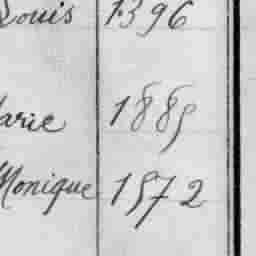 Louis 1396
Marie 1885
Monique 1572